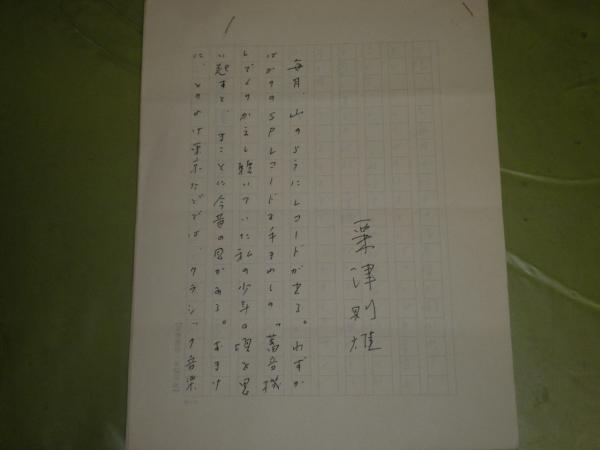 粟津則雄
毎月、山のようにレコードが出る。わずか
ばかりのSPレコードを手まわしの蓄音機
でくりかえし聴いていた私の少年の頃を思
い起すと、まことに今昔の感がある。おまけ
に、とりわけ東京などでは、クラシック音楽